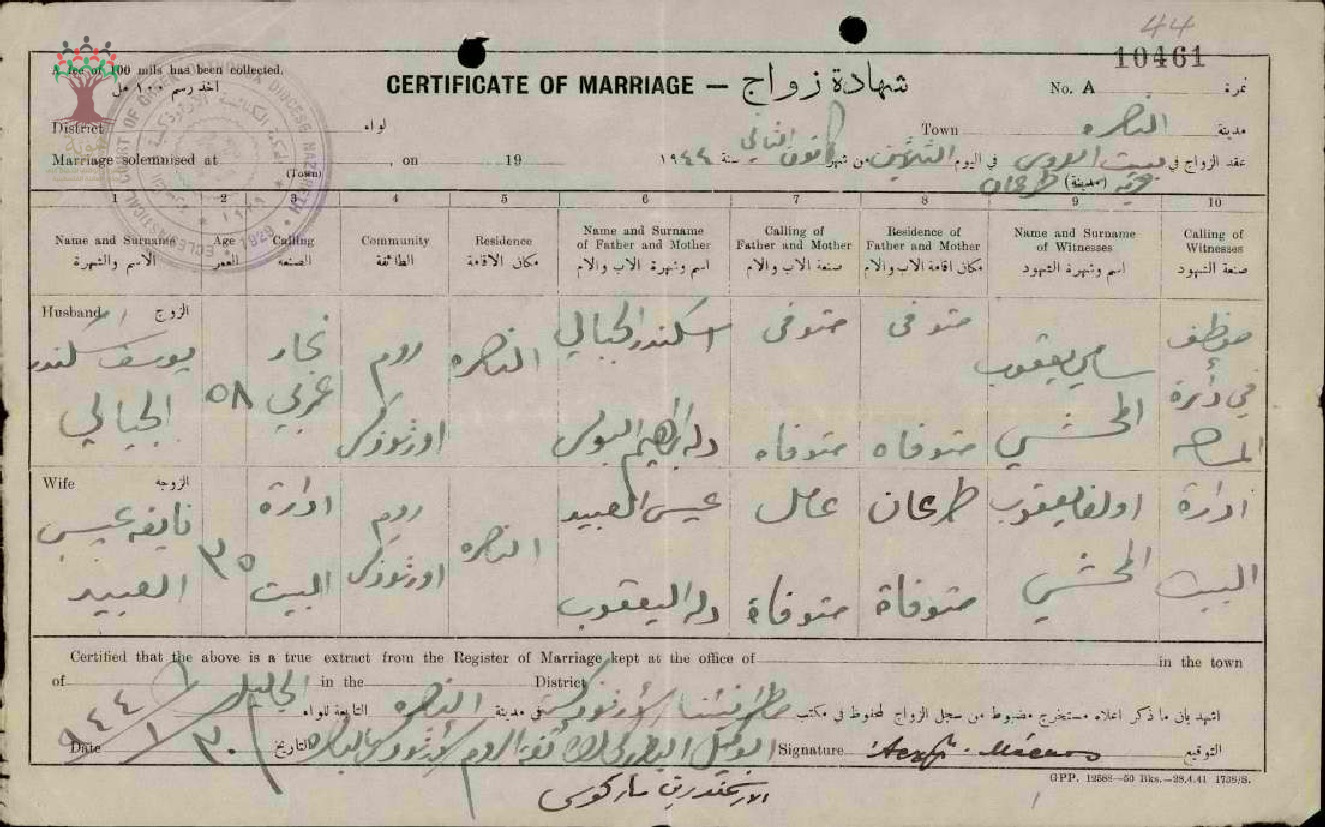 44
10461
A fee of 100 mils has been collected.
اخذ رسم ١٠٠ مل
CERTIFICATE OF MARRIAGE — شهادة زواج
No. A نمرة
District لواء
Town الناصره مدينة
Marriage solemnised at , on 19
(Town)
عقد الزواج في بيت العروس في اليوم الثلاثين من شهر كانون الثاني سنة ١٩٤٤
قرية (مدينة) طرعان
1 2 3 4 5 6 7 8 9 10
Name and Surname Age Calling Community Residence Name and Surname of Father and Mother Calling of Father and Mother Residence of Father and Mother Name and Surname of Witnesses Calling of Witnesses
الاسم والشهرة العمر الصنعة الطائفة مكان الاقامة اسم وشهرة الاب والام صنعة الاب والام مكان اقامة الاب والام اسم وشهرة الشهود صنعة الشهود
Husband الزوج
يوسف اسكندر نجار روم الناصره اسكندر الجبالي متوفى متوفى سامي يعقوب موظف
الجبالي ٥٨ عربي اورثوذكس في دائرة
ابراهيم متوفاه متوفاه
Wife الزوجه
نايفه عيسى ٣٥ ادارة روم الناصره عيسى العبيد عامل طرعان يعقوب ادارة
العبيد البيت اورثوذكس اليعقوب متوفاة متوفاة البيت
Certified that the above is a true extract from the Register of Marriage kept at the office of in the town
of in the District
اشهد بان ما ذكر اعلاه مستخرج مضبوط من سجل الزواج المحفوظ في مكتب في مدينة الناصره التابعة للواء الجليل
Date ٣٠/١/٩٤٤ التاريخ
Signature التوقيع
الارشمندريت ماركوس
GPP. 12568—50 Bks.—28.4.41 1738/S.